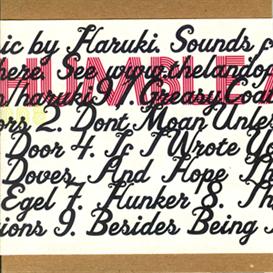 ic by Haruki. Sounds f
here. See www.thelandof
HUMBLE
/haruki97 1. Greasy Coat
ors 2. Dont Moan Unles
Door 4. If I Wrote Yo
Doves, And Hope Th
Egel 7. Hunker 8. Th
ions 9. Besides Being